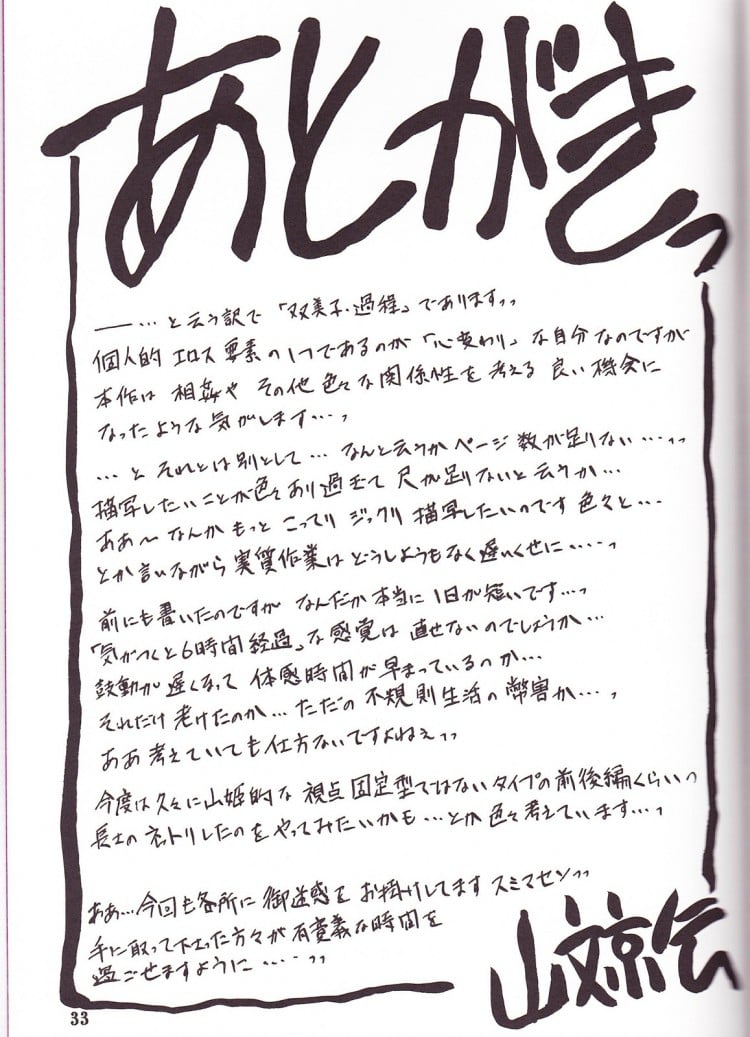 あとがきっ
――…と云う訳で「双美子・過程」でありますっっ
個人的エロス要素の1つであるのが「心変わり」な自分なのですが
本作は相姦やその他色々な関係性を考える良い機会に
なったような気がします…っ
…とそれとは別として…なんと云うかページ数が足りない…っっ
描写したいことが色々あり過ぎて尺が足りないと云うか…
ああ～なんかもっとこってりジックリ描写したいのです色々と…
とか言いながら実質作業はどうしようもなく遅いくせに……っ
前にも書いたのですがなんだか本当に1日が短いです…っ
「気がつくと6時間経過」な感覚は直せないのでしょうか…
鼓動が遅くなって体感時間が早まっているのか…
それだけ老けたのか…ただの不規則生活の弊害か…っ
ああ考えていても仕方ないですよねぇっっ
今度は久々に山姫的な視点固定型ではないタイプの前後編くらいっ
長さのネットリしたのをやってみたいかも…とか色々考えています…っ
ああ…今回も各所に御迷惑をお掛けしてますスミマセンっっ
手に取って下さった方々が有意義な時間を
過ごせますように……っっ
山文京伝
33